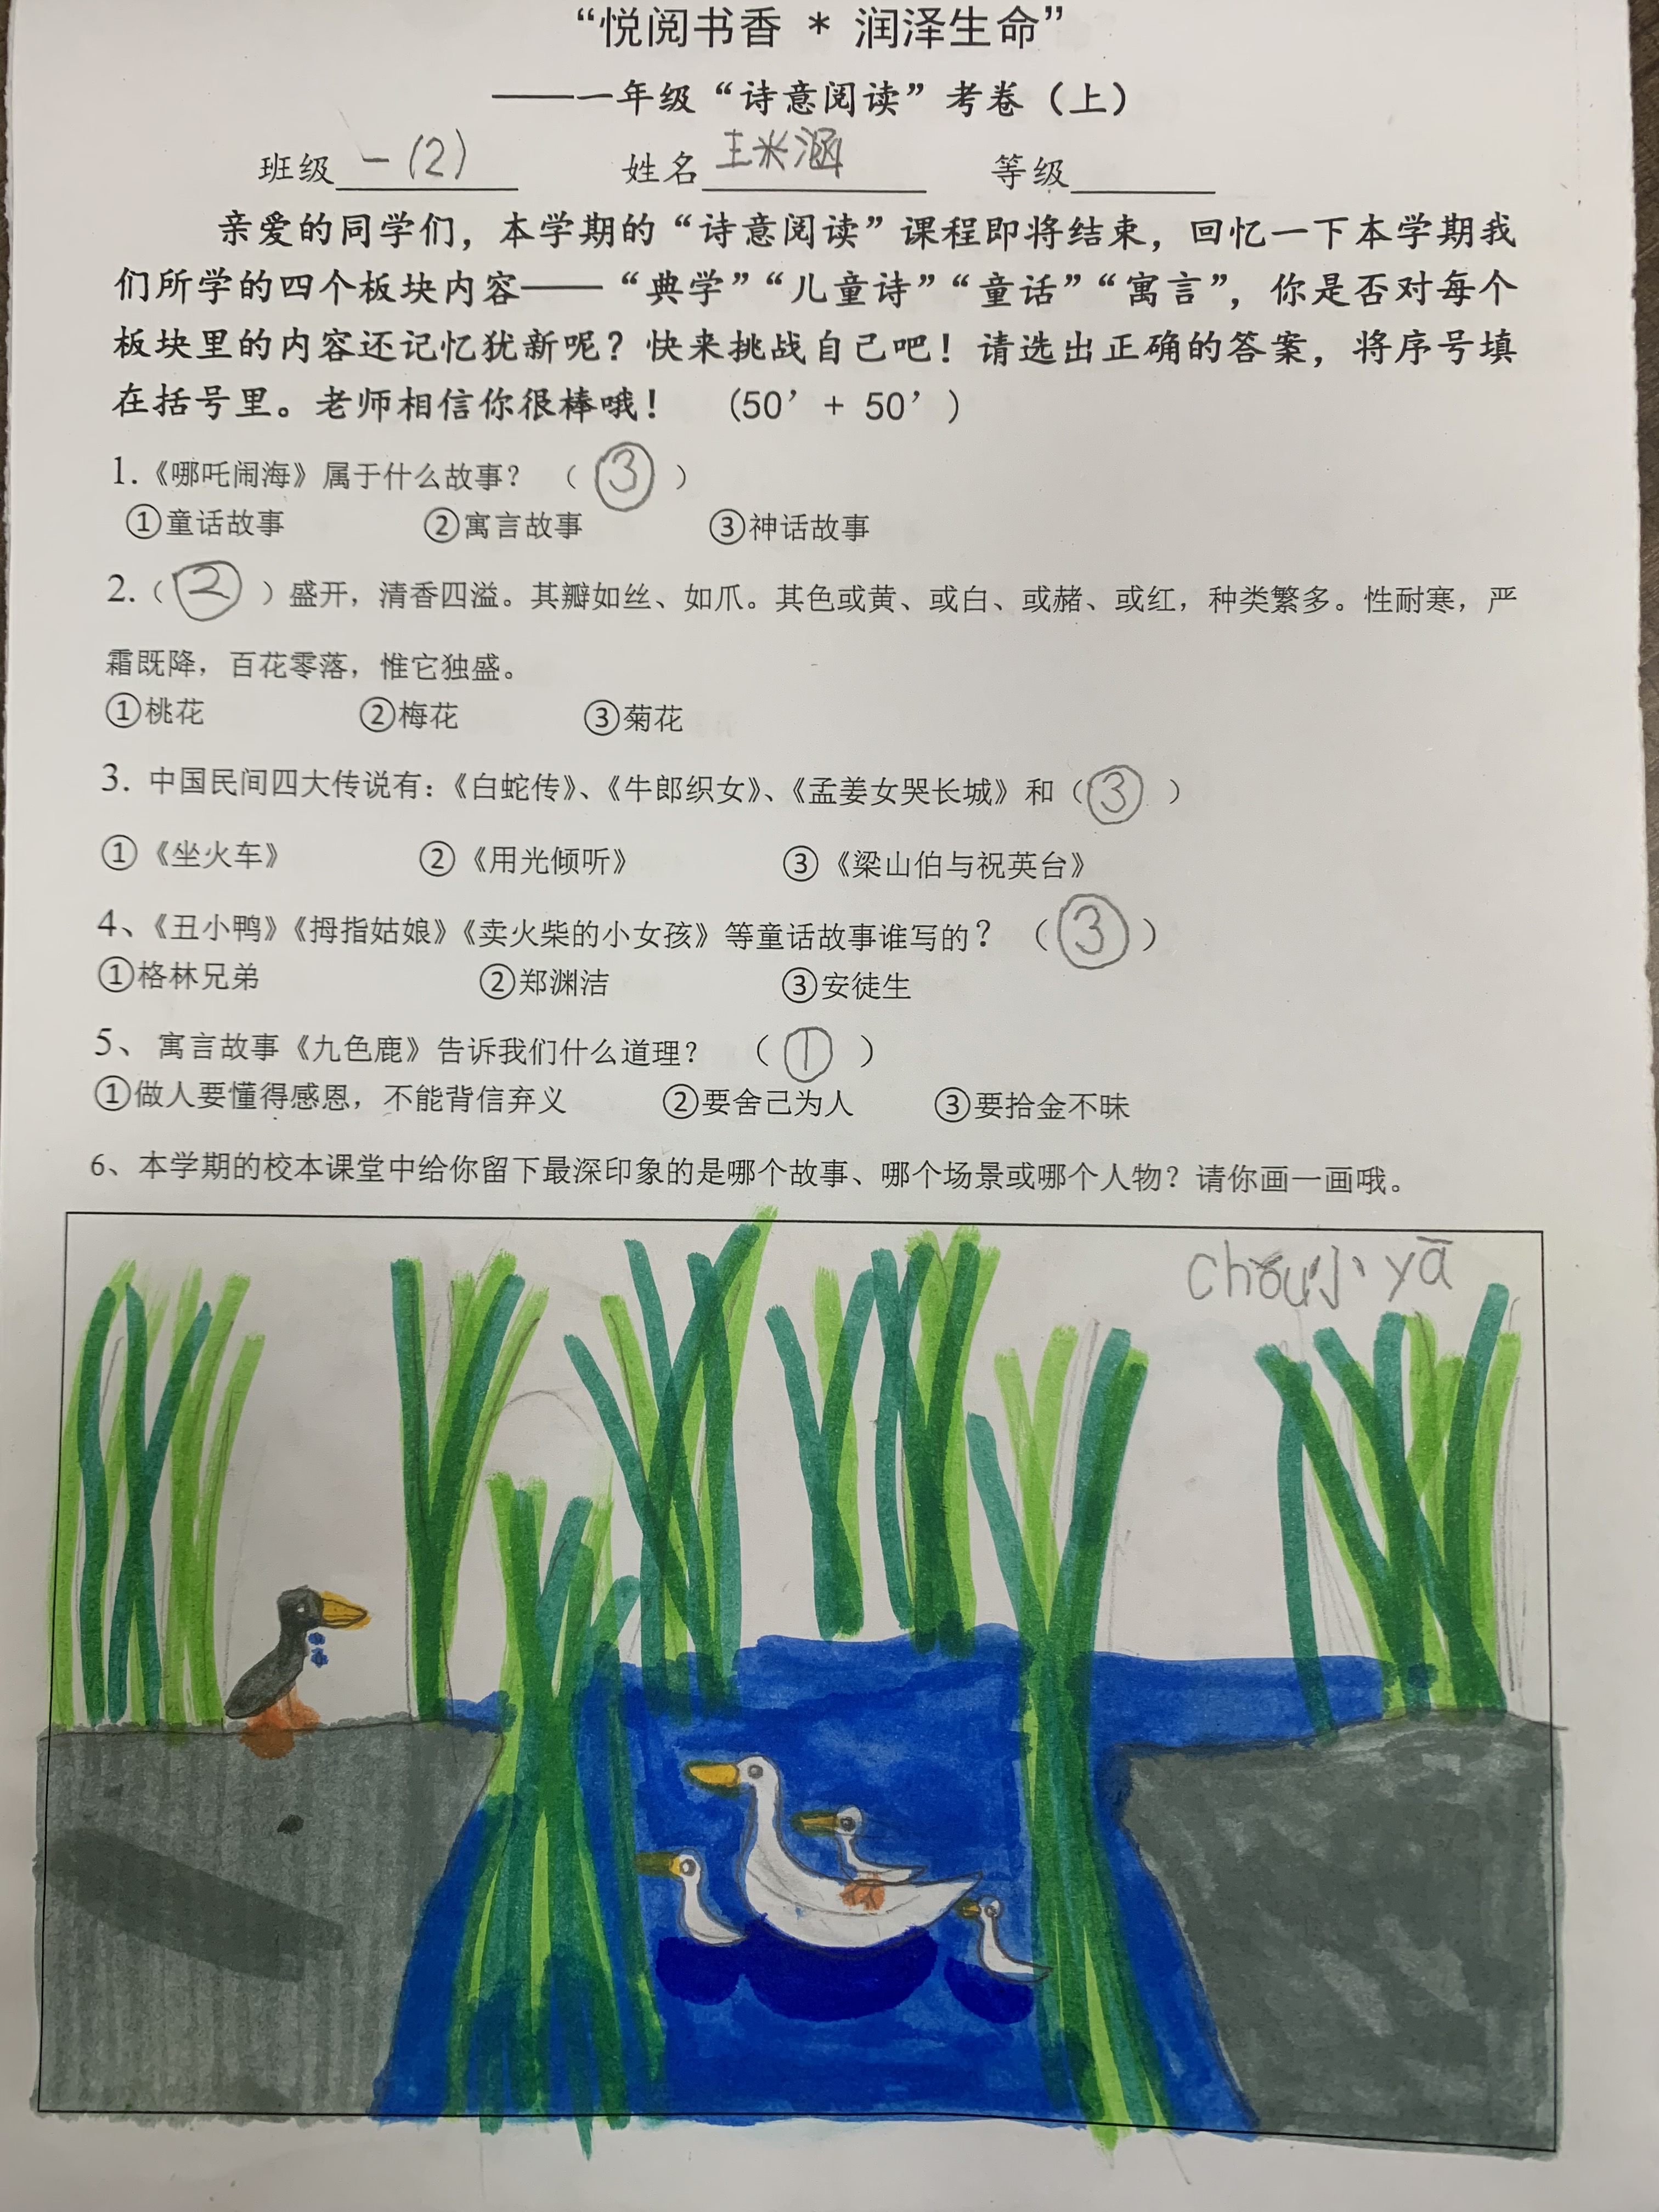 “悦阅书香 * 润泽生命”
——一年级“诗意阅读”考卷（上）
班级 一(2) 姓名 王米涵 等级
亲爱的同学们，本学期的“诗意阅读”课程即将结束，回忆一下本学期我
们所学的四个板块内容——“典学”“儿童诗”“童话”“寓言”，你是否对每个
板块里的内容还记忆犹新呢？快来挑战自己吧！请选出正确的答案，将序号填
在括号里。老师相信你很棒哦！ （50’ + 50’ ）
1.《哪吒闹海》属于什么故事？ （ ③ ）
①童话故事 ②寓言故事 ③神话故事
2.（ ② ）盛开，清香四溢。其瓣如丝、如爪。其色或黄、或白、或赭、或红，种类繁多。性耐寒，严
霜既降，百花零落，惟它独盛。
①桃花 ②梅花 ③菊花
3. 中国民间四大传说有：《白蛇传》、《牛郎织女》、《孟姜女哭长城》和（ ③ ）
①《坐火车》 ②《用光倾听》 ③《梁山伯与祝英台》
4、《丑小鸭》《拇指姑娘》《卖火柴的小女孩》等童话故事谁写的？ （ ③ ）
①格林兄弟 ②郑渊洁 ③安徒生
5、 寓言故事《九色鹿》告诉我们什么道理？ （ ① ）
①做人要懂得感恩，不能背信弃义 ②要舍己为人 ③要拾金不昧
6、本学期的校本课堂中给你留下最深印象的是哪个故事、哪个场景或哪个人物？请你画一画哦。
chǒu小 yā